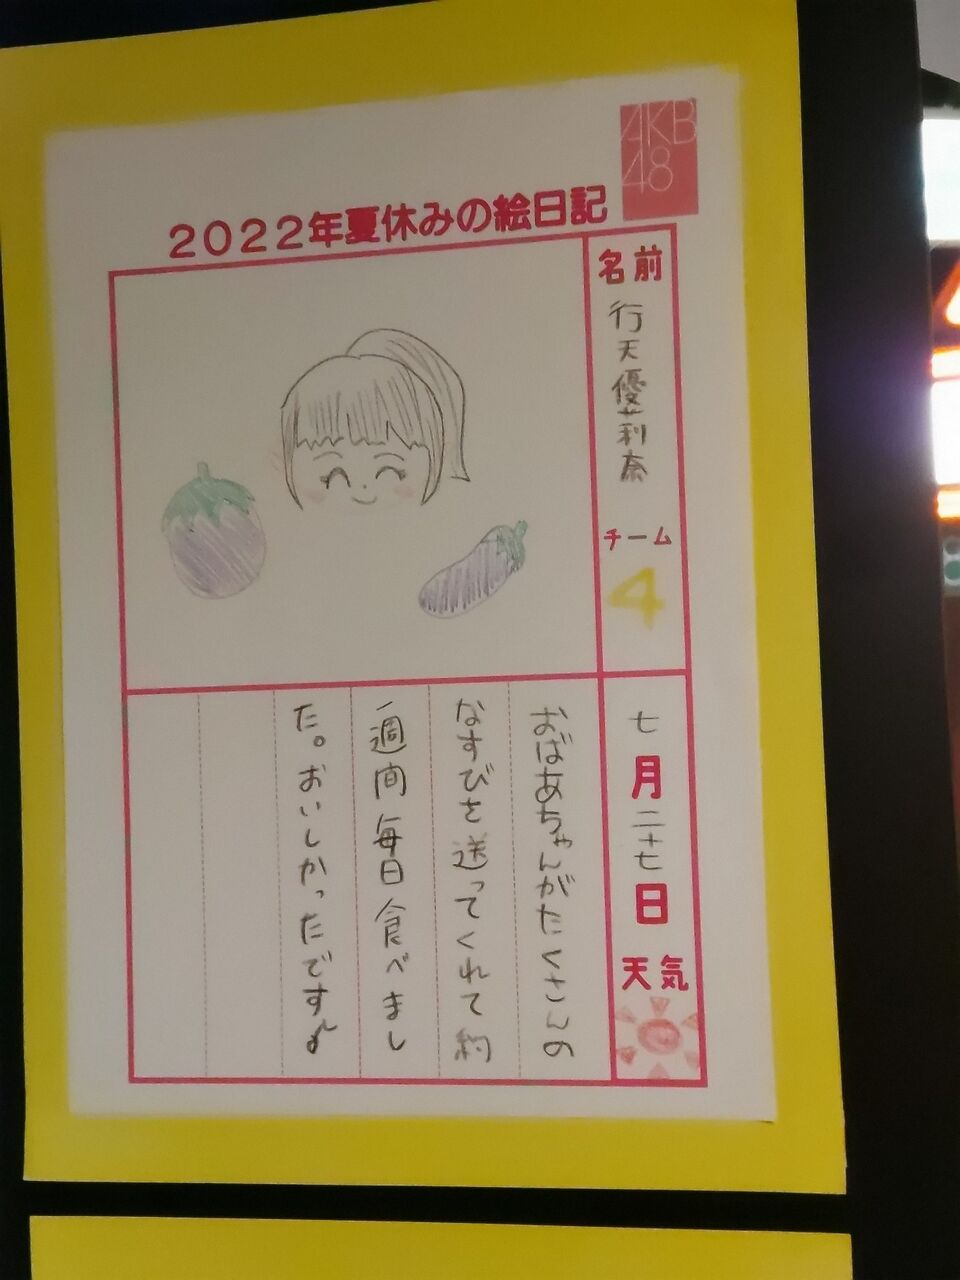 AKB
48
2022年夏休みの絵日記
名前
行天優莉奈
チーム
4
七月二十七日
天気
おばあちゃんがたくさんの
なすびを送ってくれて約
一週間毎日食べまし
た。おいしかったです♪